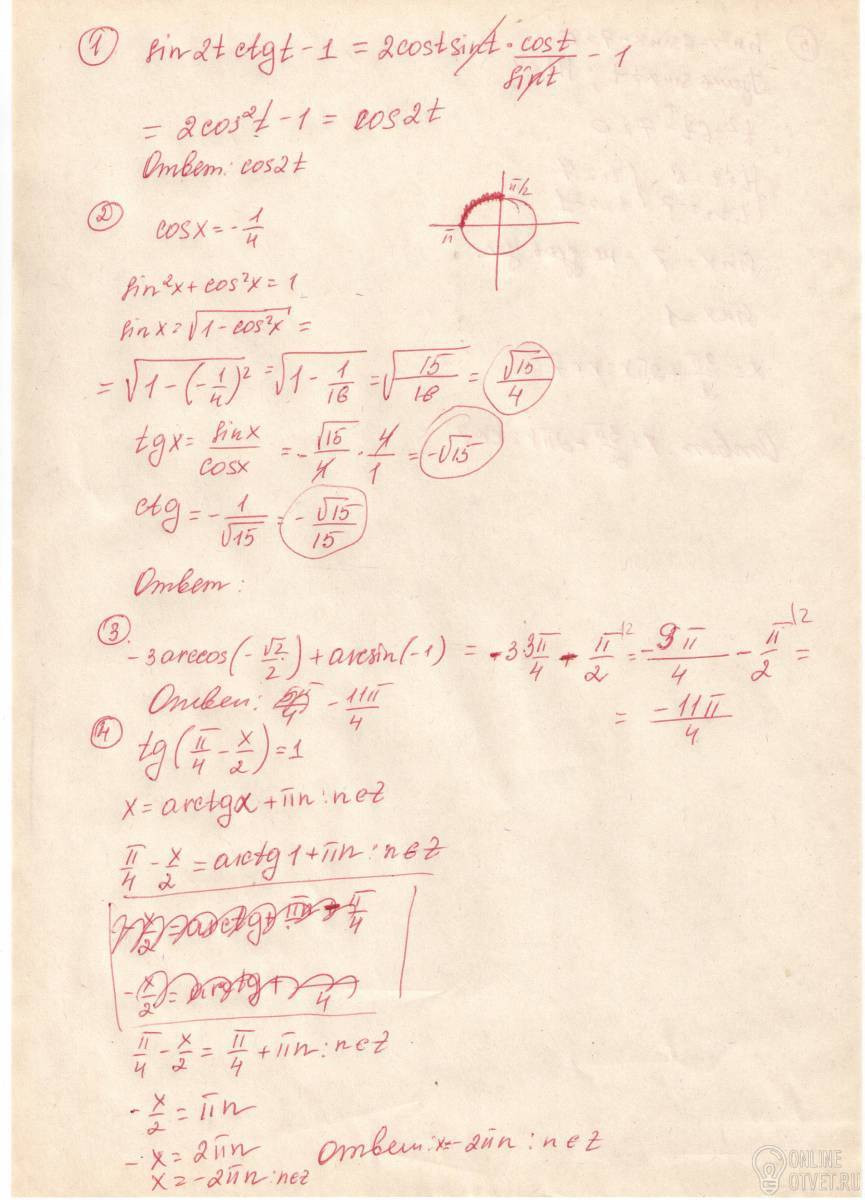 ① sin2t ctgt - 1 = 2cost sint · cost/sint - 1
= 2cos²t - 1 = cos2t
Ответ: cos2t
② cosx = -1/4
π/2
π
sin²x + cos²x = 1
sinx = √(1 - cos²x) =
= √(1 - (-1/4)²) = √(1 - 1/16) = √(15/16) = √15/4
tgx = sinx/cosx = -√15/4 · 4/1 = -√15
ctg = -1/√15 = -√15/15
Ответ:
③ -3arccos(-√2/2) + arcsin(-1) = -3 3π/4 - π/2 |2 = -9π/4 - π/2 |2 =
Ответ: -11π/4
= -11π/4
④ tg(π/4 - x/2) = 1
x = arctgx + πn : n∈z
π/4 - x/2 = arctg1 + πn : n∈z
π/4 - x/2 = π/4 + πn : n∈z
-x/2 = πn
-x = 2πn
x = -2πn : n∈z
Ответ: x = -2πn : n∈z
ONLINE
OTVET.RU